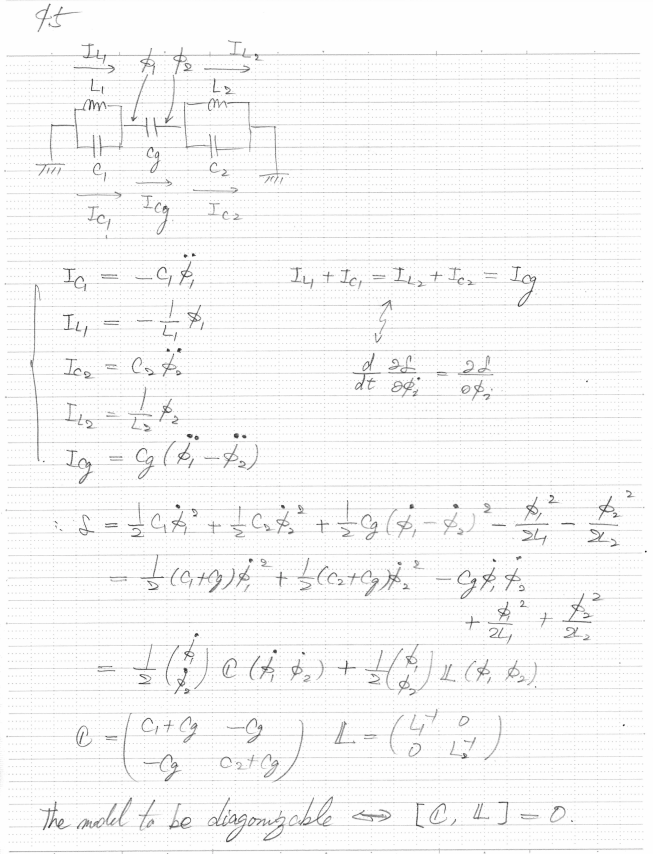 4.5
I_{L_1} ϕ_1 ϕ_2 I_{L_2}
L_1 L_2
C_1 C_g C_2
I_{C_1} I_{C_g} I_{C_2}
I_{C_1} = -C_1 \ddot{ϕ}_1 I_{L_1} + I_{C_1} = I_{L_2} + I_{C_2} = I_{C_g}
I_{L_1} = -\frac{1}{L_1} ϕ_1
I_{C_2} = C_2 \ddot{ϕ}_2 \frac{d}{dt} \frac{∂ℒ}{∂\dot{ϕ}_i} = \frac{∂ℒ}{∂ϕ_i}
I_{L_2} = \frac{1}{L_2} ϕ_2
I_{C_g} = C_g (\ddot{ϕ}_1 - \ddot{ϕ}_2)
∴ ℒ = \frac{1}{2} C_1 \dot{ϕ}_1^2 + \frac{1}{2} C_2 \dot{ϕ}_2^2 + \frac{1}{2} C_g (\dot{ϕ}_1 - \dot{ϕ}_2)^2 - \frac{ϕ_1^2}{2L_1} - \frac{ϕ_2^2}{2L_2}
= \frac{1}{2} (C_1+C_g) \dot{ϕ}_1^2 + \frac{1}{2} (C_2+C_g) \dot{ϕ}_2^2 - C_g \dot{ϕ}_1 \dot{ϕ}_2
+ \frac{ϕ_1^2}{2L_1} + \frac{ϕ_2^2}{2L_2}
= \frac{1}{2} \begin{pmatrix} \dot{ϕ}_1 \\ \dot{ϕ}_2 \end{pmatrix} ℂ (\dot{ϕ}_1 \dot{ϕ}_2) + \frac{1}{2} \begin{pmatrix} ϕ_1 \\ ϕ_2 \end{pmatrix} 𝕃 (ϕ_1 ϕ_2)
ℂ = \begin{pmatrix} C_1+C_g & -C_g \\ -C_g & C_2+C_g \end{pmatrix} 𝕃 = \begin{pmatrix} L_1^{-1} & 0 \\ 0 & L_2^{-1} \end{pmatrix}
The model to be diagonizable ⇔ [ℂ, 𝕃] = 0.